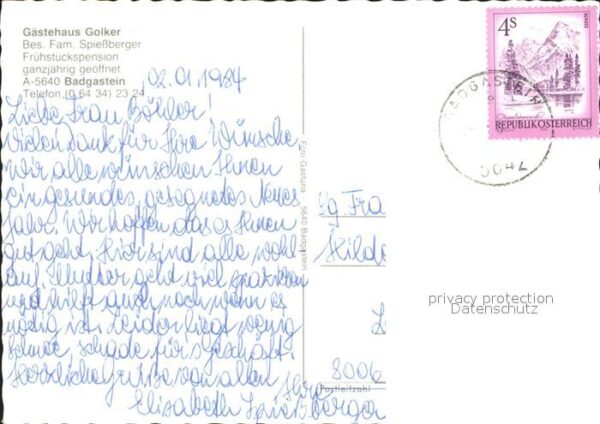 Gästehaus Golker
Bes. Fam. Spießberger
Frühstückspension
ganzjährig geöffnet
A-5640 Badgastein
Telefon (0 64 34) 23 24
02.01.1984
Liebe Frau Böhler!
Vielen Dank für Ihre Wünsche,
wir alle wünschen Ihnen
ein gesundes, gesegnetes Neues
Jahr. Wir hoffen, dass es Ihnen
gut geht. Hier sind alle wohl
auf. Mutter geht viel spazieren
und hilft auch noch, wenn es
nötig ist. Leider liegt wenig
Schnee, schade für's Geschäft.
Herzliche Grüße von allen
Ihre
Elisabeth Spießberger
Foto Gastuna - 5640 Badgastein
4S
REPUBLIK ÖSTERREICH
BADGASTEIN
Sg Fra
Hilde
8006
Postleitzahl
privacy protection
Datenschutz